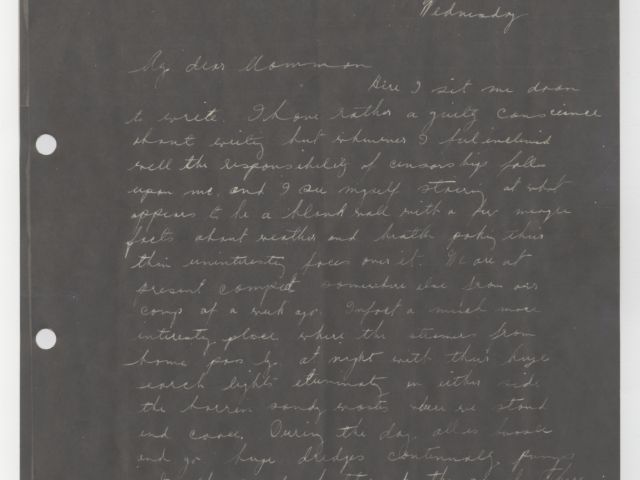 Wednesday
My dear Momman
Here I sit me down
to write. I have rather a guilty conscience
about writing but whenever I feel inclined
well the responsibility of censorship falls
upon me and I see myself staring at what
appears to be a blank wall with a few meagre
facts about weather and health poking their
thin uninteresting faces over it. We are at
present camped somewhere else from our
camp of a week ago. Infact a much more
interesting place where the steamers from
home pass by at night with their huge
search lights illuminating on either side
the barren sandy wastes where we stand
and During the day all is
and go huge dredges continually pump